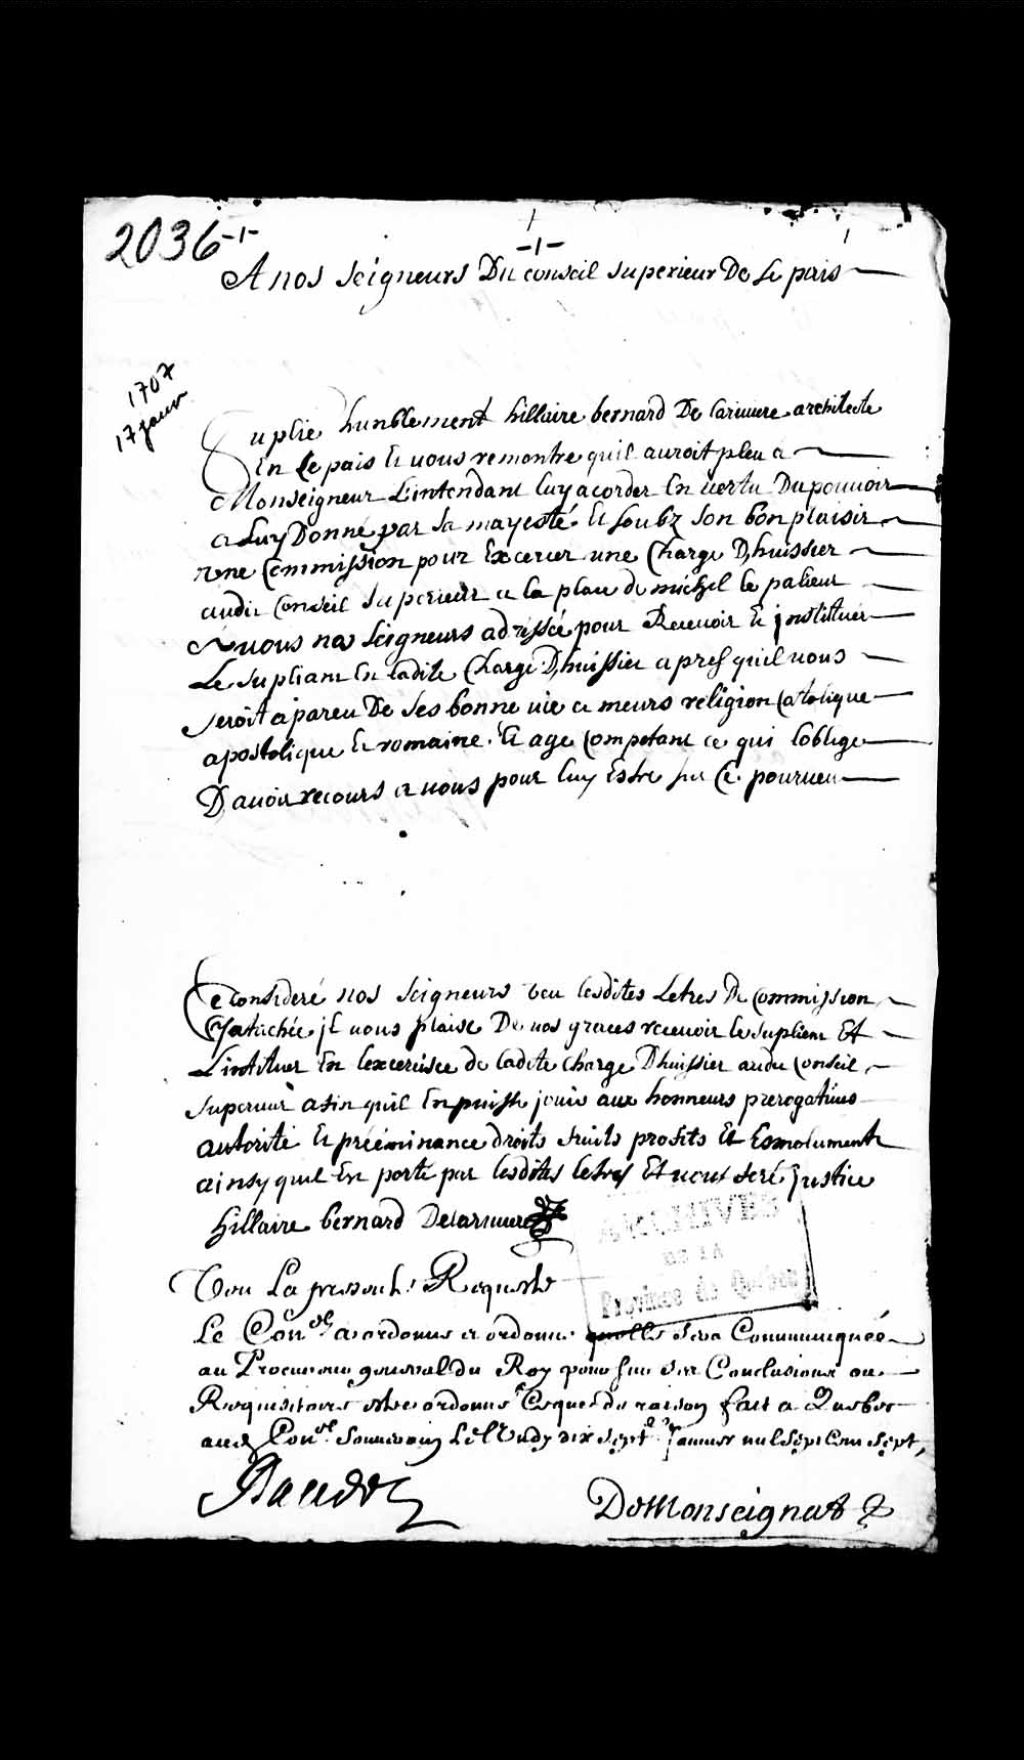 2036-1-
-1-
A nos seigneurs Du conseil superieur De Ce pais
1707
17 janvr
Suplie humblement hillaire bernard De lariuiere architecte
En Ce pais Et uous remontre quil auroit pleu a
Monseigneur Lintendant luy acorder En uertu Du pouuoir
a Luy Donné par sa mayesté Et soubz son bon plaisir
une Commission pour Excercer une Charge D,huissier
audit Conseil superieur a la place de michel le palieur
A uous nos seigneurs adressée pour Receuoir Et jnstituer
Le supliant En ladite Charge D,huissier apres quil uous
seroit apareu De ses bonne uie et meurs religion Catolique
apostolique Et romaine Et age Competant ce qui loblige
D,auoir recours a uous pour luy Estre sur Ce pourueu
Ce Consideré nos seigneurs veu lesdites Letres De Commission
Cy atachée jl uous plaise De uos graces receuoir le supliant Et
Lintituer En lexcersice de ladite Charge Dhuissier audit Conseil
superieur afin quil En puisse jouir aux honneurs prerogatiues
autorité Et prééminance droits fruits profits Et Esmolument
ainsy quil Est porté par lesdites letres Et uous feré justice
hillaire bernard Delariuiere
Veu La presente Requeste
Le Conel a ordonné et ordonne quelle sera Communiquée
au Procureur general du Roy pour sur ses Conclusions ou
Requisitoire estre ordonné Ce que de raison fait a Quebec
aud Conel Souuerain Le Lundy dix sept Januier mil sept Cens sept,
Raudot
DeMonseignat
ARCHIVES
DE LA
Province de Québec